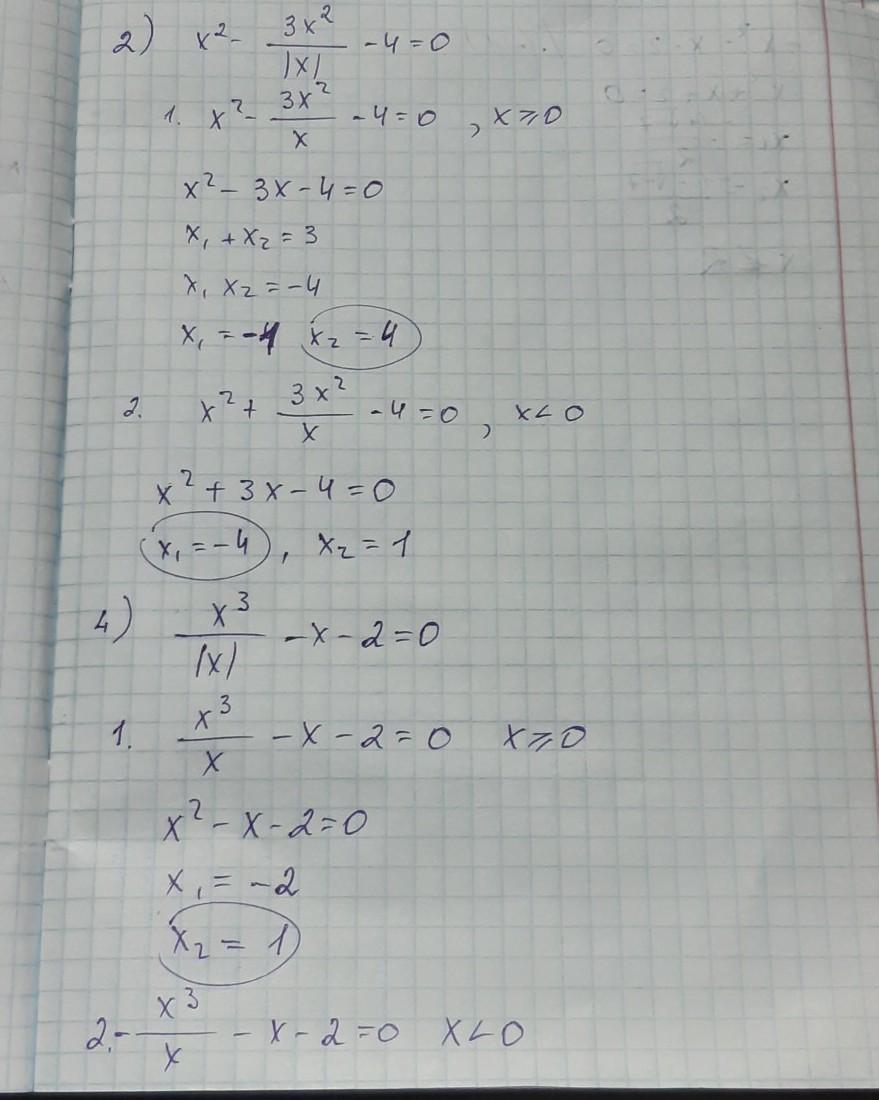 2) x² - 3x²/|x| - 4 = 0
1. x² - 3x²/x - 4 = 0 , x ⩾ 0
x² - 3x - 4 = 0
x₁ + x₂ = 3
x₁ x₂ = -4
x₁ = -1 x₂ = 4
2. x² + 3x²/x - 4 = 0 , x < 0
x² + 3x - 4 = 0
x₁ = -4 , x₂ = 1
4) x³/|x| - x - 2 = 0
1. x³/x - x - 2 = 0 x ⩾ 0
x² - x - 2 = 0
x₁ = -2
x₂ = 1
2. - x³/x - x - 2 = 0 x < 0